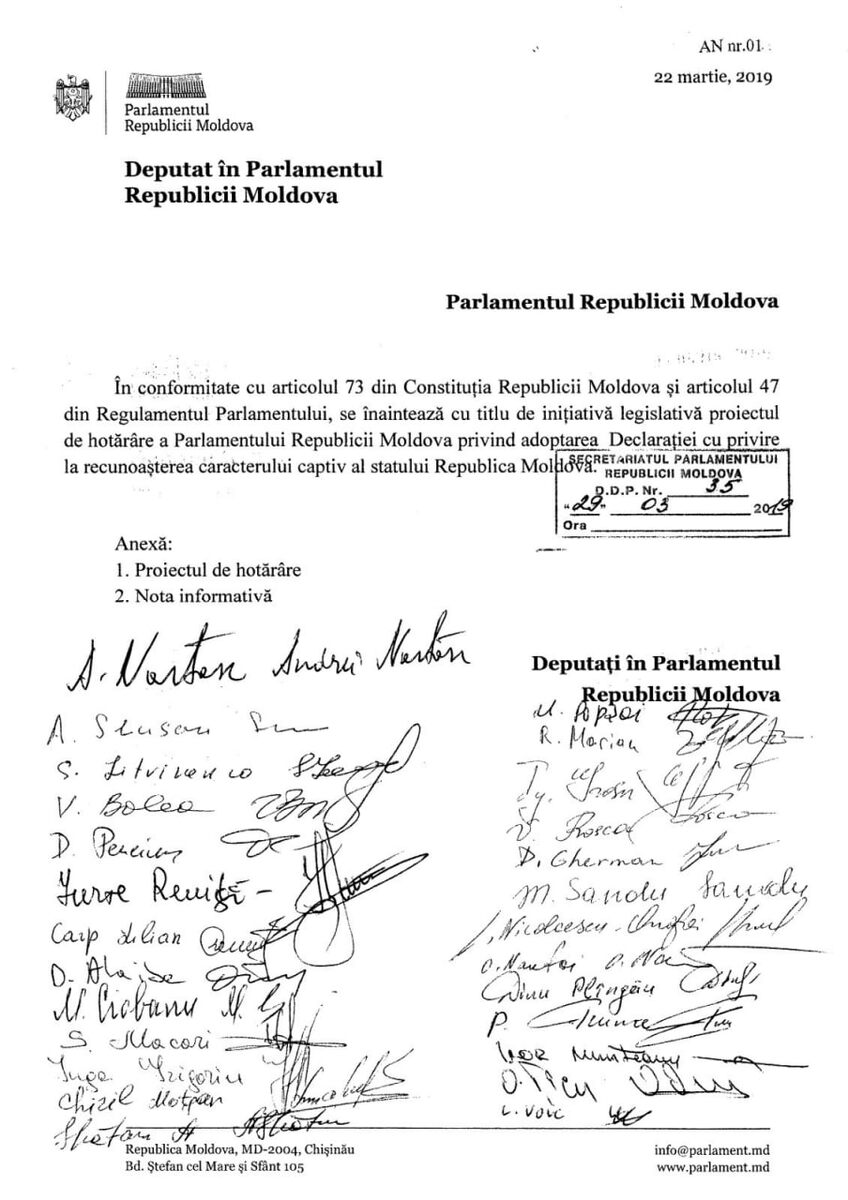 AN nr.01
22 martie, 2019
Parlamentul
Republicii Moldova
Deputat în Parlamentul
Republicii Moldova
Parlamentul Republicii Moldova
În conformitate cu articolul 73 din Constituția Republicii Moldova și articolul 47
din Regulamentul Parlamentului, se înaintează cu titlu de inițiativă legislativă proiectul
de hotărâre a Parlamentului Republicii Moldova privind adoptarea Declarației cu privire
la recunoașterea caracterului captiv al statului Republica Moldova.
SECRETARIATUL PARLAMENTULUI
REPUBLICII MOLDOVA
D.D.P. Nr. 35
"29" 03 2019
Ora
Anexă:
1. Proiectul de hotărâre
2. Nota informativă
Deputați în Parlamentul
Republicii Moldova
Andrei
A. Slusari
S. Litvinenco
V. Bolea
D. Perciun
Carp Lilian
D. Alaiba
M. Ciobanu
S. Macari
Inga Grigoriu
Chiril Moțpan
M. Popșoi
R. Marian
V. Rosca
D. Gherman
M. Sandu
Nicolaescu-Onofrei
O. Nantoi
Dinu Plîngău
P.
Igor Munteanu
O. Țîcu
L. Voic
Republica Moldova, MD-2004, Chișinău
Bd. Ștefan cel Mare și Sfânt 105
info@parlament.md
www.parlament.md